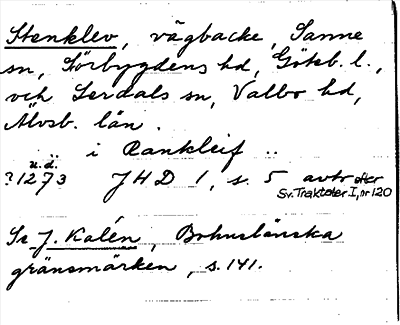 Stenklev, vägbacke, Sanne
sn, Sörbygdens hd, Göteb. l.,
och Lerdals sn, Valbo hd,
Älvsb. län.
.. i Rankleif ..
u.d.
?1273 JHD 1, s. 5 avtr efter
Sv. Traktater I, nr 120
Se J. Kalén, Bohuslänska
gränsmärken, s. 141.